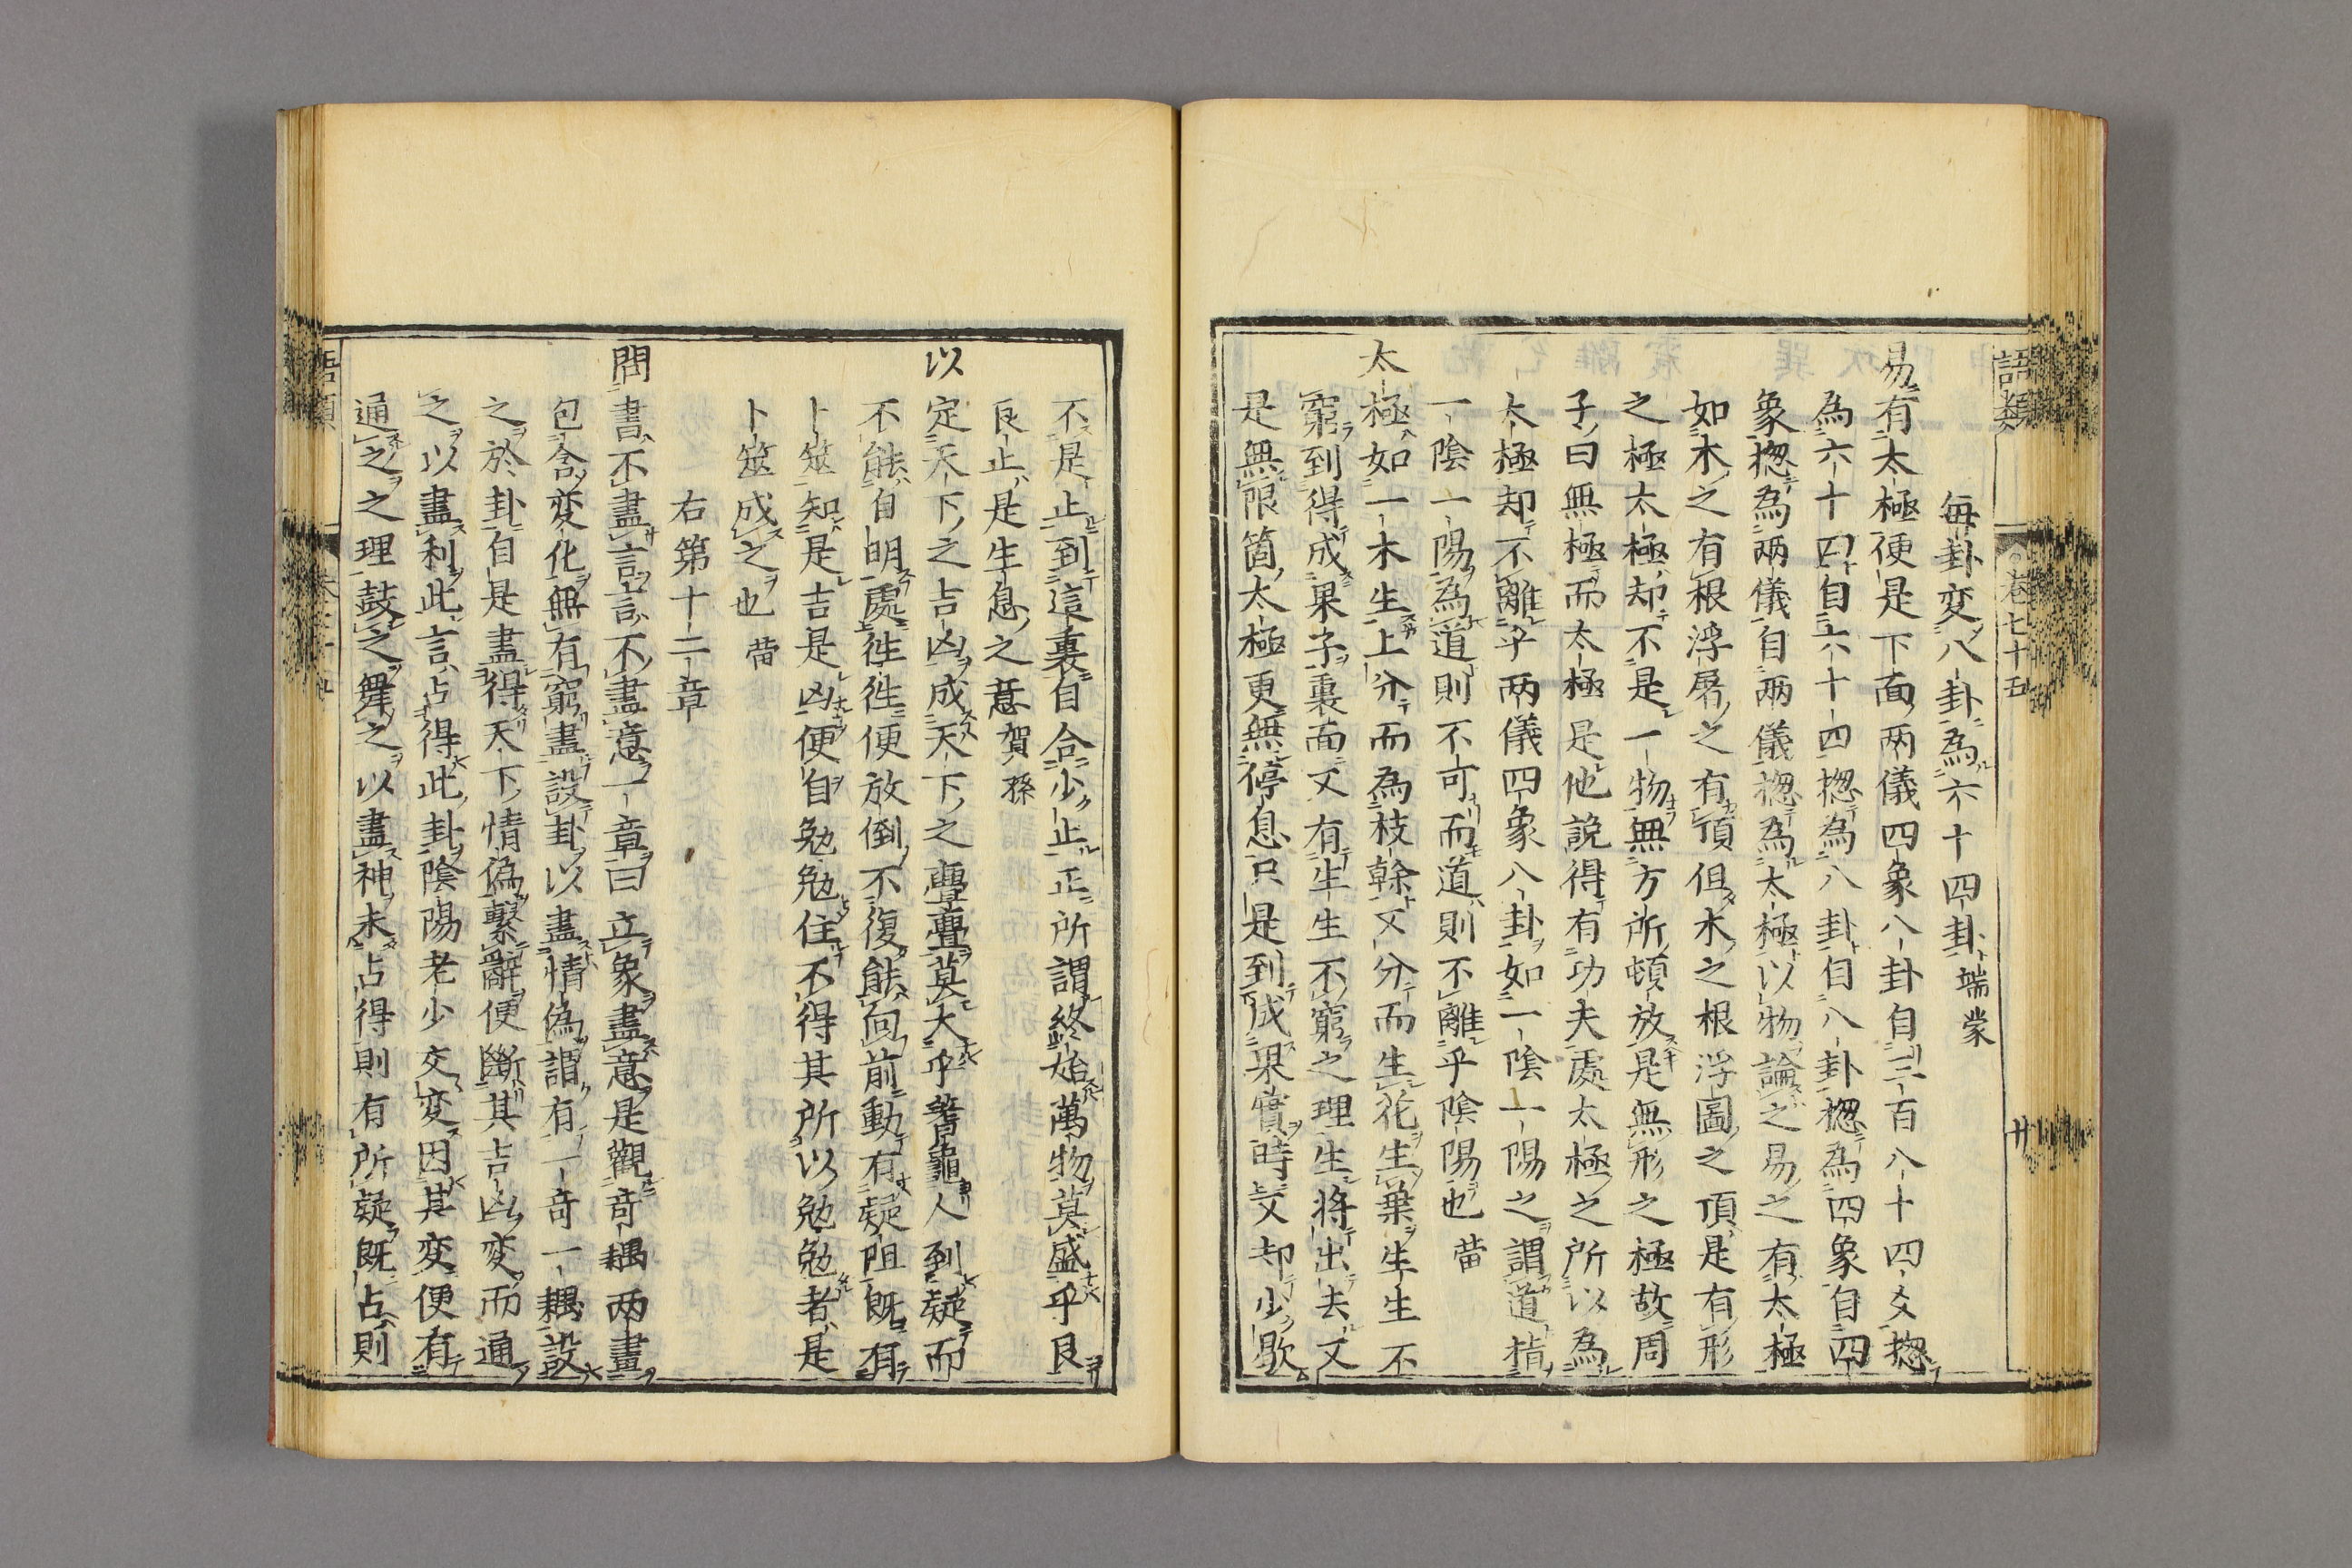 語類
卷七十五
廿
每卦変八卦為六十四卦端蒙
易有太極便是下面两儀四象八卦自三百八十四爻揔
為六十四自六十四揔為八卦自八卦揔為四象自四
象揔為两儀自两儀揔為太極以物論之易之有太極
如木之有根浮屠之有頂但木之根浮圖之頂是有形
之極太極却不是一物無方所頓放是無形之極故周
子曰無極而太極是他說得有功夫處太極之所以為
太極却不離乎两儀四象八卦如一陰一陽之謂道指
一陰一陽為道則不可而道則不離乎陰陽也㽦
太極如一木生上分而為枝幹又分而生花生葉生生不
窮到得成果子裏面又有生生不窮之理生將出去又
是無限箇太極更無停息只是到成果實時又却少歇
不是止到這裏自合少止正所謂終始萬物莫盛乎艮
艮止是生息之意賀孫
以定天下之吉凶成天下之亹亹莫大乎蓍龜人到疑而
不能自明處徃徃便放倒不復能向前動有疑阻既有
卜筮知是吉是凶便自勉勉住不得其所以勉勉者是
卜筮成之也㽦
右第十二章
問書不盡言言不盡意一章曰立象盡意是觀奇耦两畫
包含変化無有窮盡設卦以盡情偽謂有一奇一耦設
之於卦自是盡得天下情偽繫辭便斷其吉凶変而通
之以盡利此言占得此卦陰陽老少交変因其変便有
通之之理鼓之舞之以盡神未占得則有所疑既占則
語類